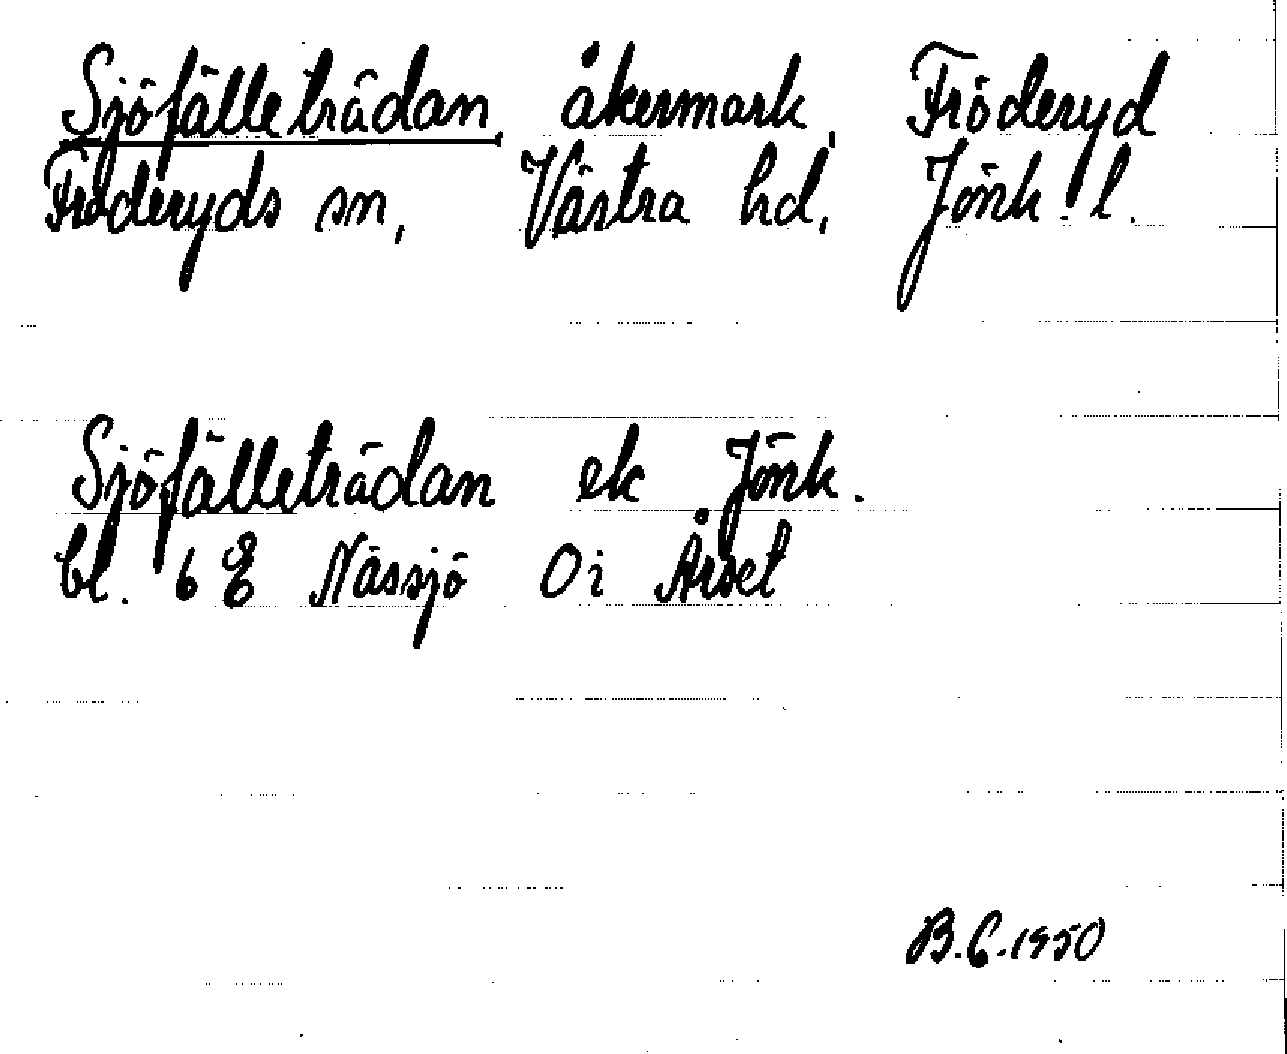 Sjöfälleträdan, åkermark, Fröderyd
Fröderyds sn, Västra hd, Jönk. l.
Sjöfälleträdan ek Jönk.
bl. 6 Nässjö Oi Årset
B.G. 1950